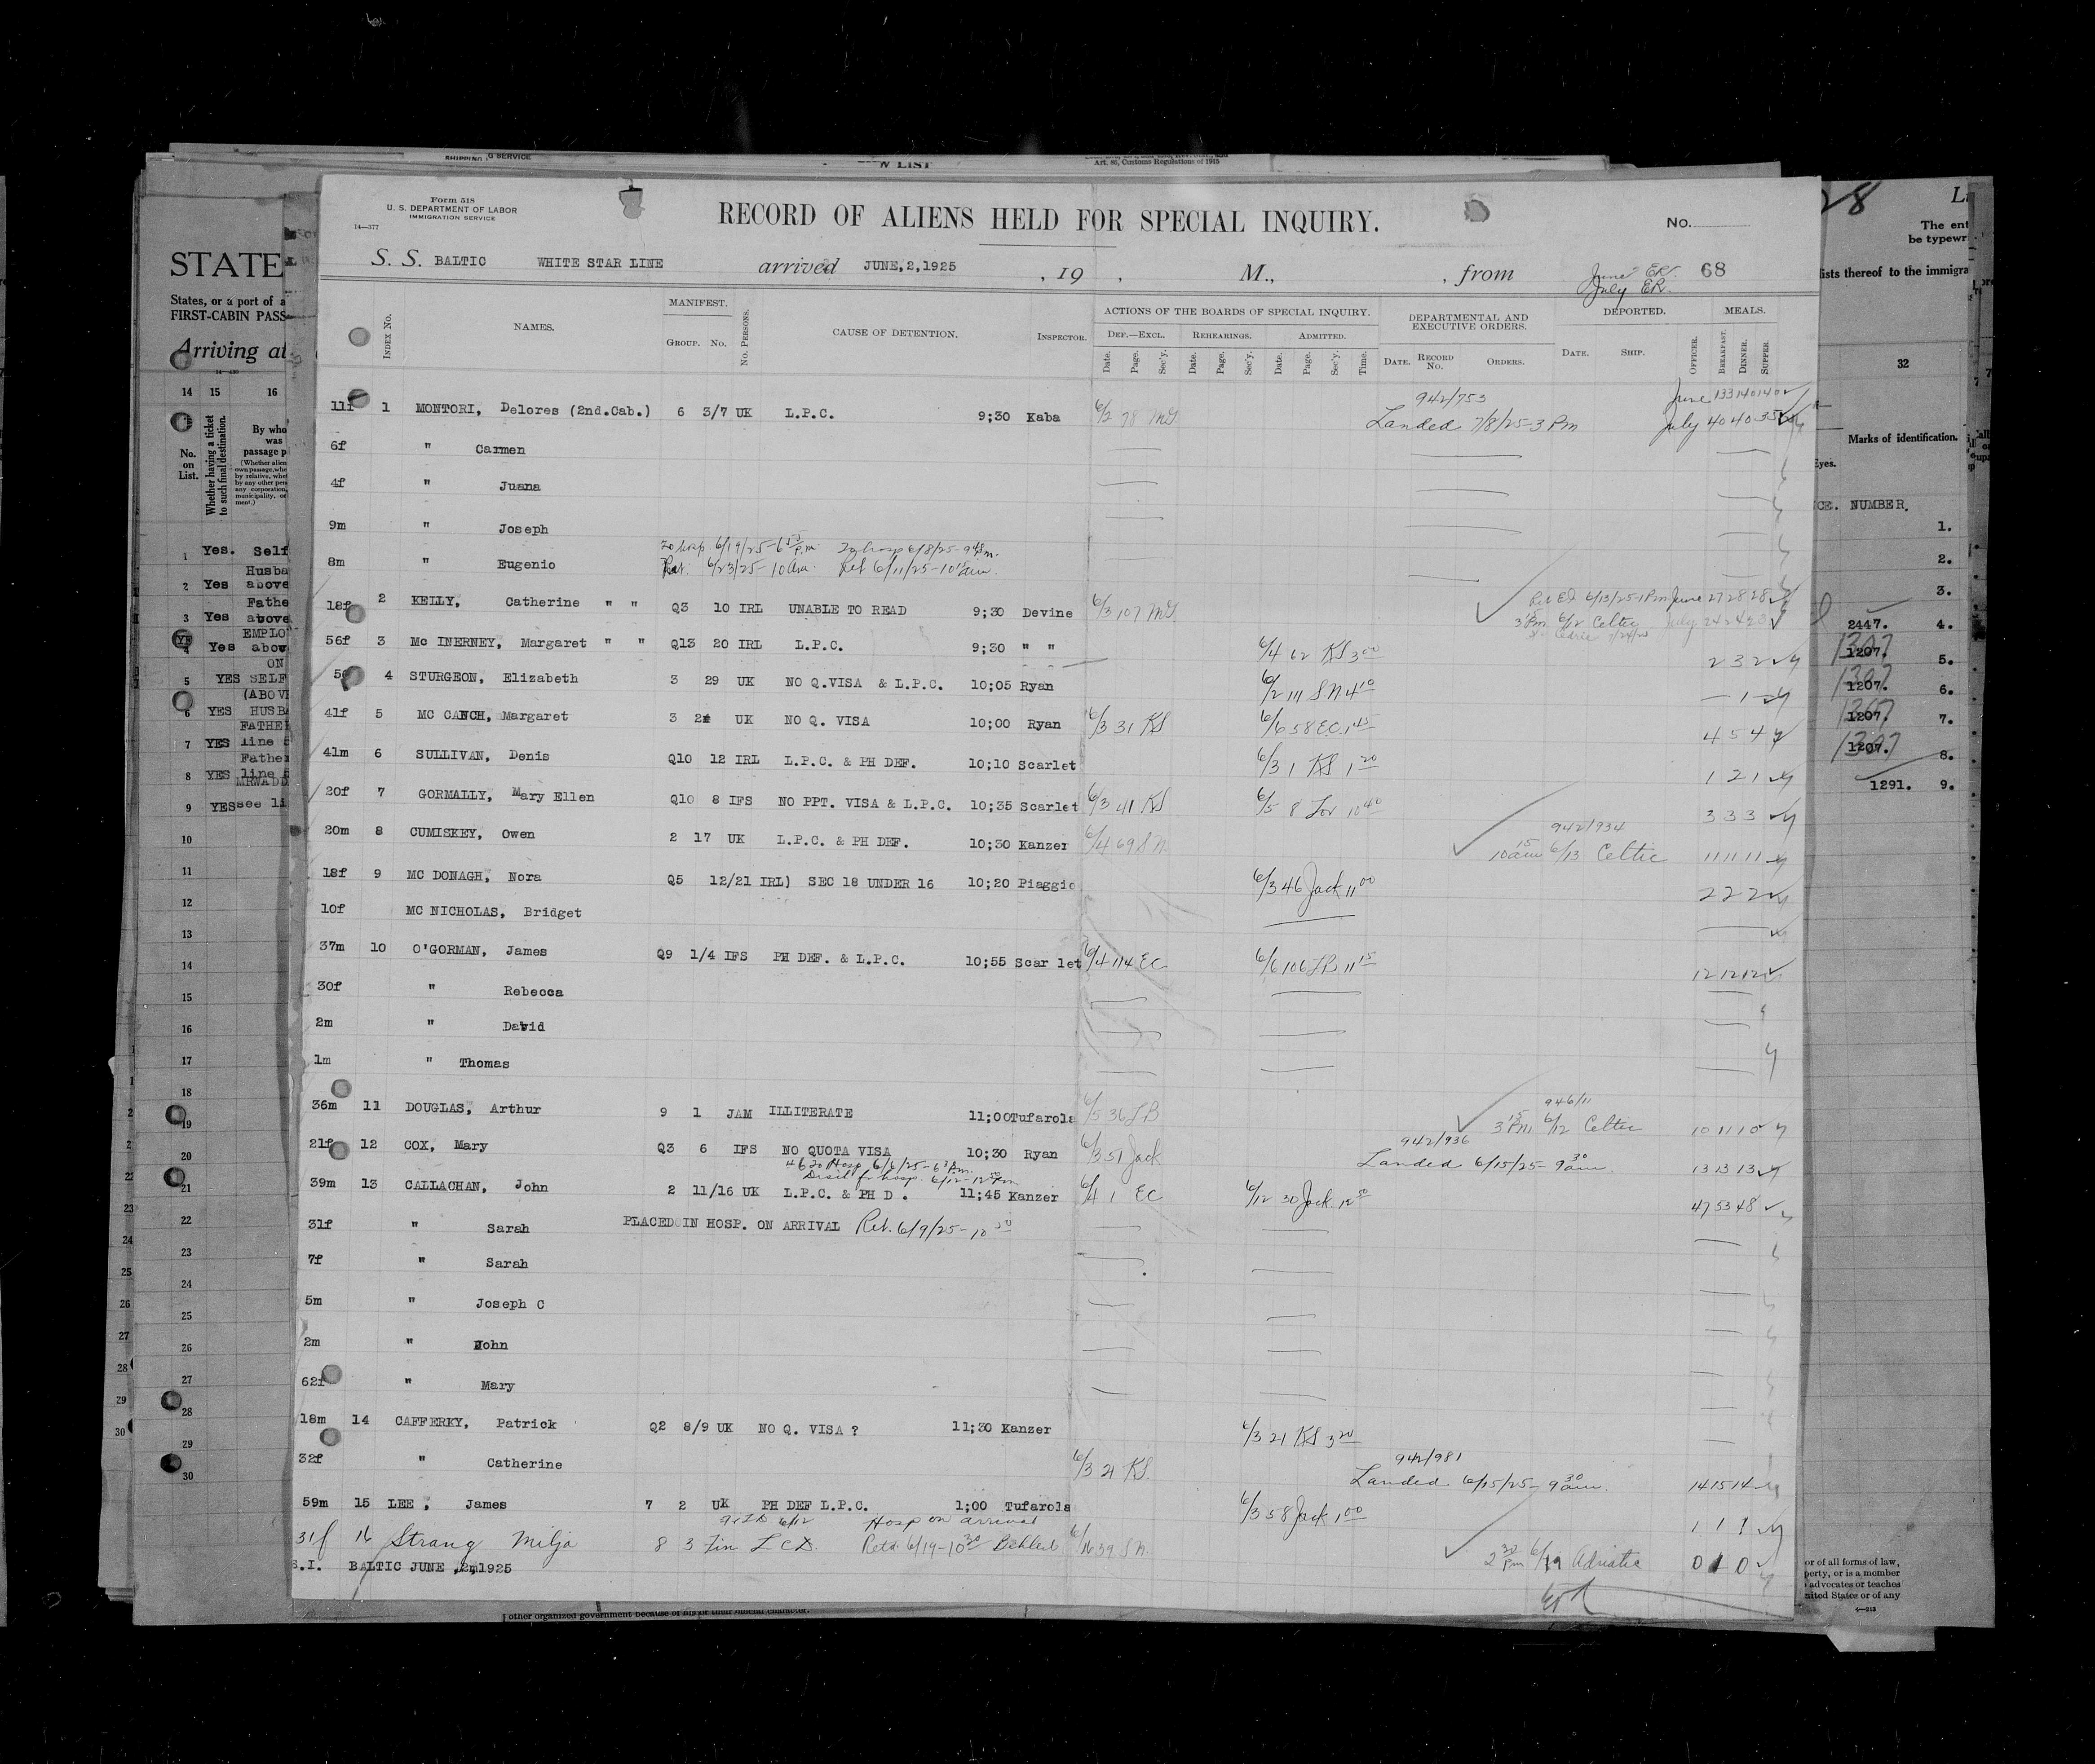 SHIPPING G SERVICE
W LIST
Art. 86, Customs Regulations of 1915
Form 518
U. S. DEPARTMENT OF LABOR
IMMIGRATION SERVICE
14—377
RECORD OF ALIENS HELD FOR SPECIAL INQUIRY.
No.
S. S. BALTIC WHITE STAR LINE arrived JUNE,2,1925 , 19 , M., , from June ER. 68
July ER.
INDEX No. NAMES. MANIFEST. GROUP. No. No. PERSONS. CAUSE OF DETENTION. INSPECTOR.
ACTIONS OF THE BOARDS OF SPECIAL INQUIRY. DEPARTMENTAL AND EXECUTIVE ORDERS. DEPORTED. MEALS.
DEF.—EXCL. REHEARINGS. ADMITTED.
Date. Page. Sec'y. Date. Page. Sec'y. Date. Page. Sec'y. Time. DATE. RECORD No. ORDERS. DATE. SHIP. OFFICER. BREAKFAST. DINNER. SUPPER.
942/753 June 133 140 140
11f 1 MONTORI, Delores (2nd.Cab.) 6 3/7 UK L.P.C. 9;30 Kaba 6/2 78 MG Landed 7/8/25-3 Pm July 40 40 35
6f " Carmen
4f " Juana
9m " Joseph
To hosp 6/19/25-6 P.m. To hosp 6/8/25-9
8m " Eugenio Ret. 6/23/25-10 am. Ret 6/11/25-10 am.
18f 2 KELLY, Catherine " " Q3 10 IRL UNABLE TO READ 9;30 Devine 6/3 107 MG Ret EI 6/13/25-1Pm June 27 28 28
3 Pm 6/12 Celtic July 24 24 23
56f 3 Mc INERNEY, Margaret " " Q13 20 IRL L.P.C. 9;30 " " 6/4 62 KS 3 00 2 3 2
4 STURGEON, Elizabeth 3 29 UK NO Q.VISA & L.P.C. 10;05 Ryan 6/2 111 SN 4 10 — 1 —
41f 5 MC CANCH, Margaret 3 2 UK NO Q. VISA 10;00 Ryan 6/3 31 KS 6/6 58 EC 1 45 4 5 4
41m 6 SULLIVAN, Denis Q10 12 IRL L.P.C. & PH DEF. 10;10 Scarlet 6/3 1 KS 1 20 1 2 1
20f 7 GORMALLY, Mary Ellen Q10 8 IFS NO PPT. VISA & L.P.C. 10;35 Scarlet 6/3 41 KS 6/5 8 10 40 3 3 3
942/934
20m 8 CUMISKEY, Owen 2 17 UK L.P.C. & PH DEF. 10;30 Kanzer 6/4 69 SN 10 15 am 6/13 Celtic 11 11 11
18f 9 MC DONAGH, Nora Q5 12/21 IRL) SEC 18 UNDER 16 10;20 Piaggio 6/3 46 Jack 11 00 2 2 2
10f MC NICHOLAS, Bridget
37m 10 O'GORMAN, James Q9 1/4 IFS PH DEF. & L.P.C. 10;55 Scar let 6/4 114 EC 6/6 106 LB 11 15 12 12 12
30f " Rebecca
2m " David
1m " Thomas
946/11
36m 11 DOUGLAS, Arthur 9 1 JAM ILLITERATE 11;00 Tufarola 6/5 36 LB 3 15 Pm 6/12 Celtic 10 11 10
942/936
21f 12 COX, Mary Q3 6 IFS NO QUOTA VISA 10;30 Ryan 6/3 51 Jack Landed 6/15/25-9 30 am 13 13 13
To Hosp 6/6/25-6 P.m.
39m 13 CALLACHAN, John 2 11/16 UK L.P.C. & PH D . 11;45 Kanzer 6/4 1 EC 6/12 30 Jack 12 50 47 53 48
31f " Sarah PLACED IN HOSP. ON ARRIVAL Ret. 6/9/25-10
7f " Sarah
5m " Joseph C
2m " John
62f " Mary
18m 14 CAFFERKY, Patrick Q2 8/9 UK NO Q. VISA ? 11;30 Kanzer 6/3 21 KS 3 20
942/981
32f " Catherine 6/3 21 KS. Landed 6/15/25-9 30 am. 14 15 14
59m 15 LEE , James 7 2 UK PH DEF L.P.C. 1;00 Tufarola 6/3 58 Jack 1 00 1 1 1
6/12 Hosp on arrival
31f 16 Strang Milja 8 3 Fin L C D. Retd 6/14-10 30 6/16 39 SN. 2 30 Pm 6/19 Adriatic 0 1 0
S.I. BALTIC JUNE ,2,1925
STATE
States, or a port of a
FIRST-CABIN PASS
Arriving at
14 15 16
No. on List.
Whether having a ticket to such final destination.
By who
was
passage p
1 Yes. Self
Husba
2 Yes above
Fathe
3 Yes above
EMPLO
4 Yes abov
ON
5 YES SELF
(ABOVE
6 YES HUSB
FATHE
7 YES line 5
Father
8 YES line
9 YES see li
10
11
12
13
14
15
16
17
18
19
20
21
22
23
24
25
26
27
28
29
30
28
The ent
be typewr
ists thereof to the immigra
32
Marks of identification.
Eyes.
CE. NUMBER.
1.
2.
3.
2447. 4.
1207. 1307 5.
1207. 1307 6.
1207. 1307 7.
1207. 1307 8.
1291. 9.
or of all forms of law,
perty, or is a member
advocates or teaches
nited States or of any
other organized government because of his or their official character.